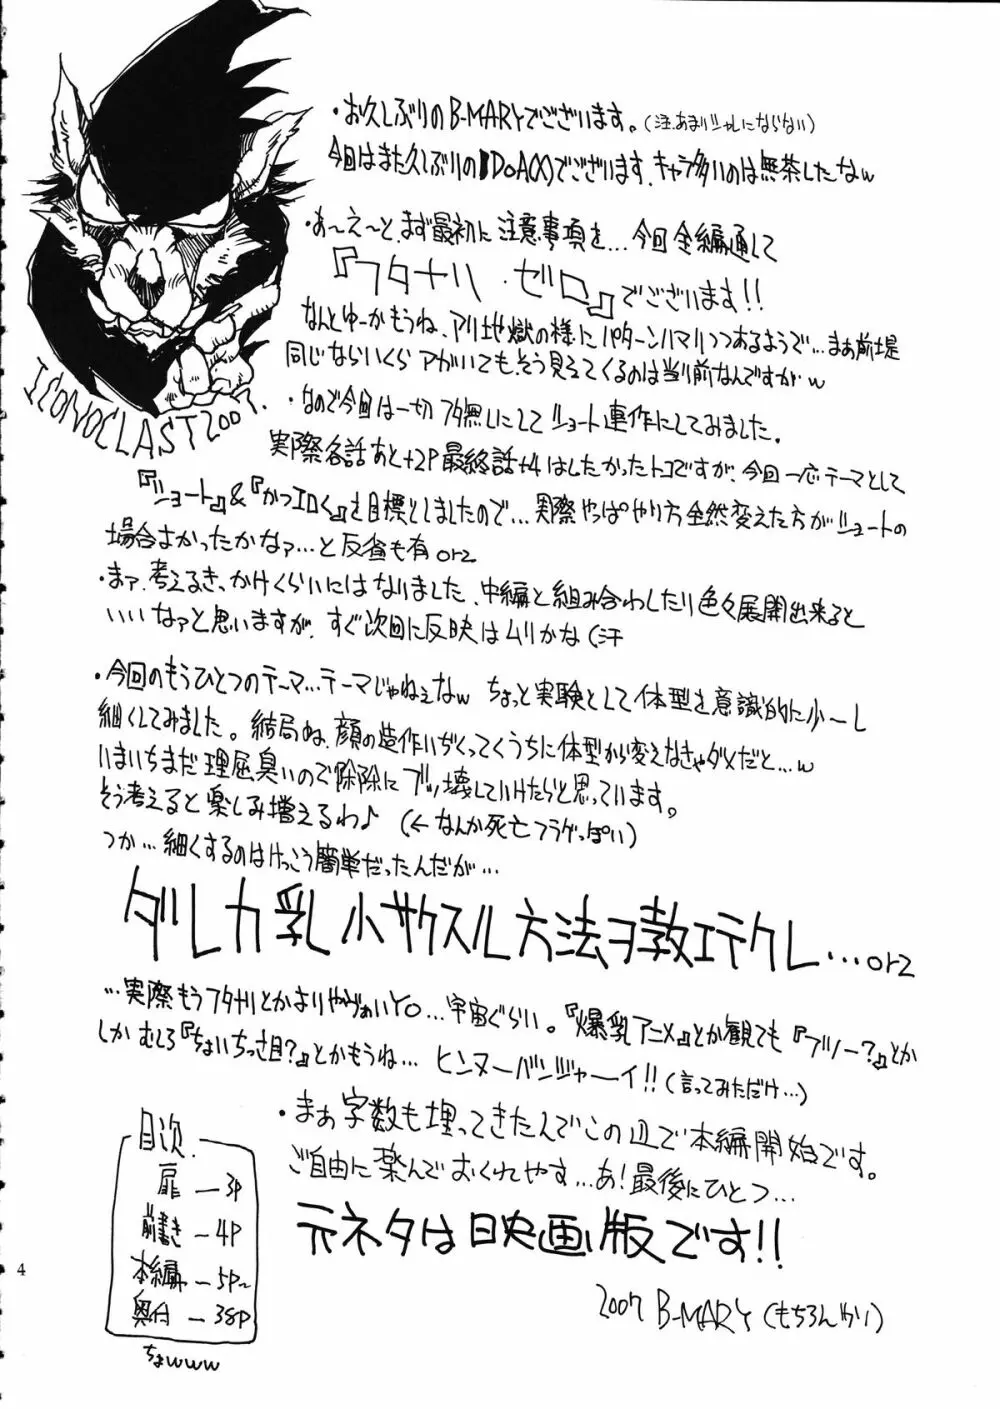 ・お久しぶりのB-MARYでございます。(注.あまりシャレにならない)
今回はまた久しぶりのDoA(X)でございます、キャラ多いのは無茶したなw
・あ〜え〜と、まず最初に注意事項を…今回全編通して
『フタナリ・ゼロ』でございます!!
なんとゆーかもうね、アリ地獄の様にパターンハマリつつあるようで…まあ前堤
同じならいくらアがいても、そう見えてくるのは当り前なんですがw
ICONOCLAST2007.
・なので今回は一切フタ無しにしてショート連作にしてみました。
実際各話あと+2P最終話+4はしたかったトコですが、今回一応テーマとして
『ショート』&『かつエロく』を目標としましたので…実際やっぱやり方全然変えた方がショートの
場合よかったかなァ…と反省も有orz
・まァ、考えるきっかけくらいにはなりました、中編と組み合わしたり色々展開出来ると
いいなァと思いますが、すぐ次回に反映はムリかな(汗
・今回のもうひとつのテーマ…テーマじゃねぇなw ちょっと実験として体型を意識的に少〜し
細くしてみました。結局ね、顔の造作いぢくってくうちに体型から変えなきゃダメだと…w
いまいちまだ理屈臭いので除除にブッ壊していけたらと思っています。
そう考えると楽しみ増えるわ♪ (←なんか死亡フラグっぽい)
つか…細くするのはけっこう簡単だったんだが…
ダレカ乳小サクスル方法ヲ教エテクレ…orz
…実際もうフタナリとかよりやヴぁいYO…宇宙ぐらい。『爆乳アニメ』とか観ても『フツー?』とか
しかむしろ『ちょいちっさ目?』とかもうね… ヒンヌーバンジャーイ!!(言ってみただけ…)
・まぁ字数も埋ってきたんでこの辺で本編開始です。
ご自由に楽んでおくれやす…あ!最後にひとつ…
元ネタは映画版です!!
2007 B-MARY(もちろんかり)
目次.
扉—3P
前書き—4P
本編—5P〜
奥付—38P
ちょwww
4